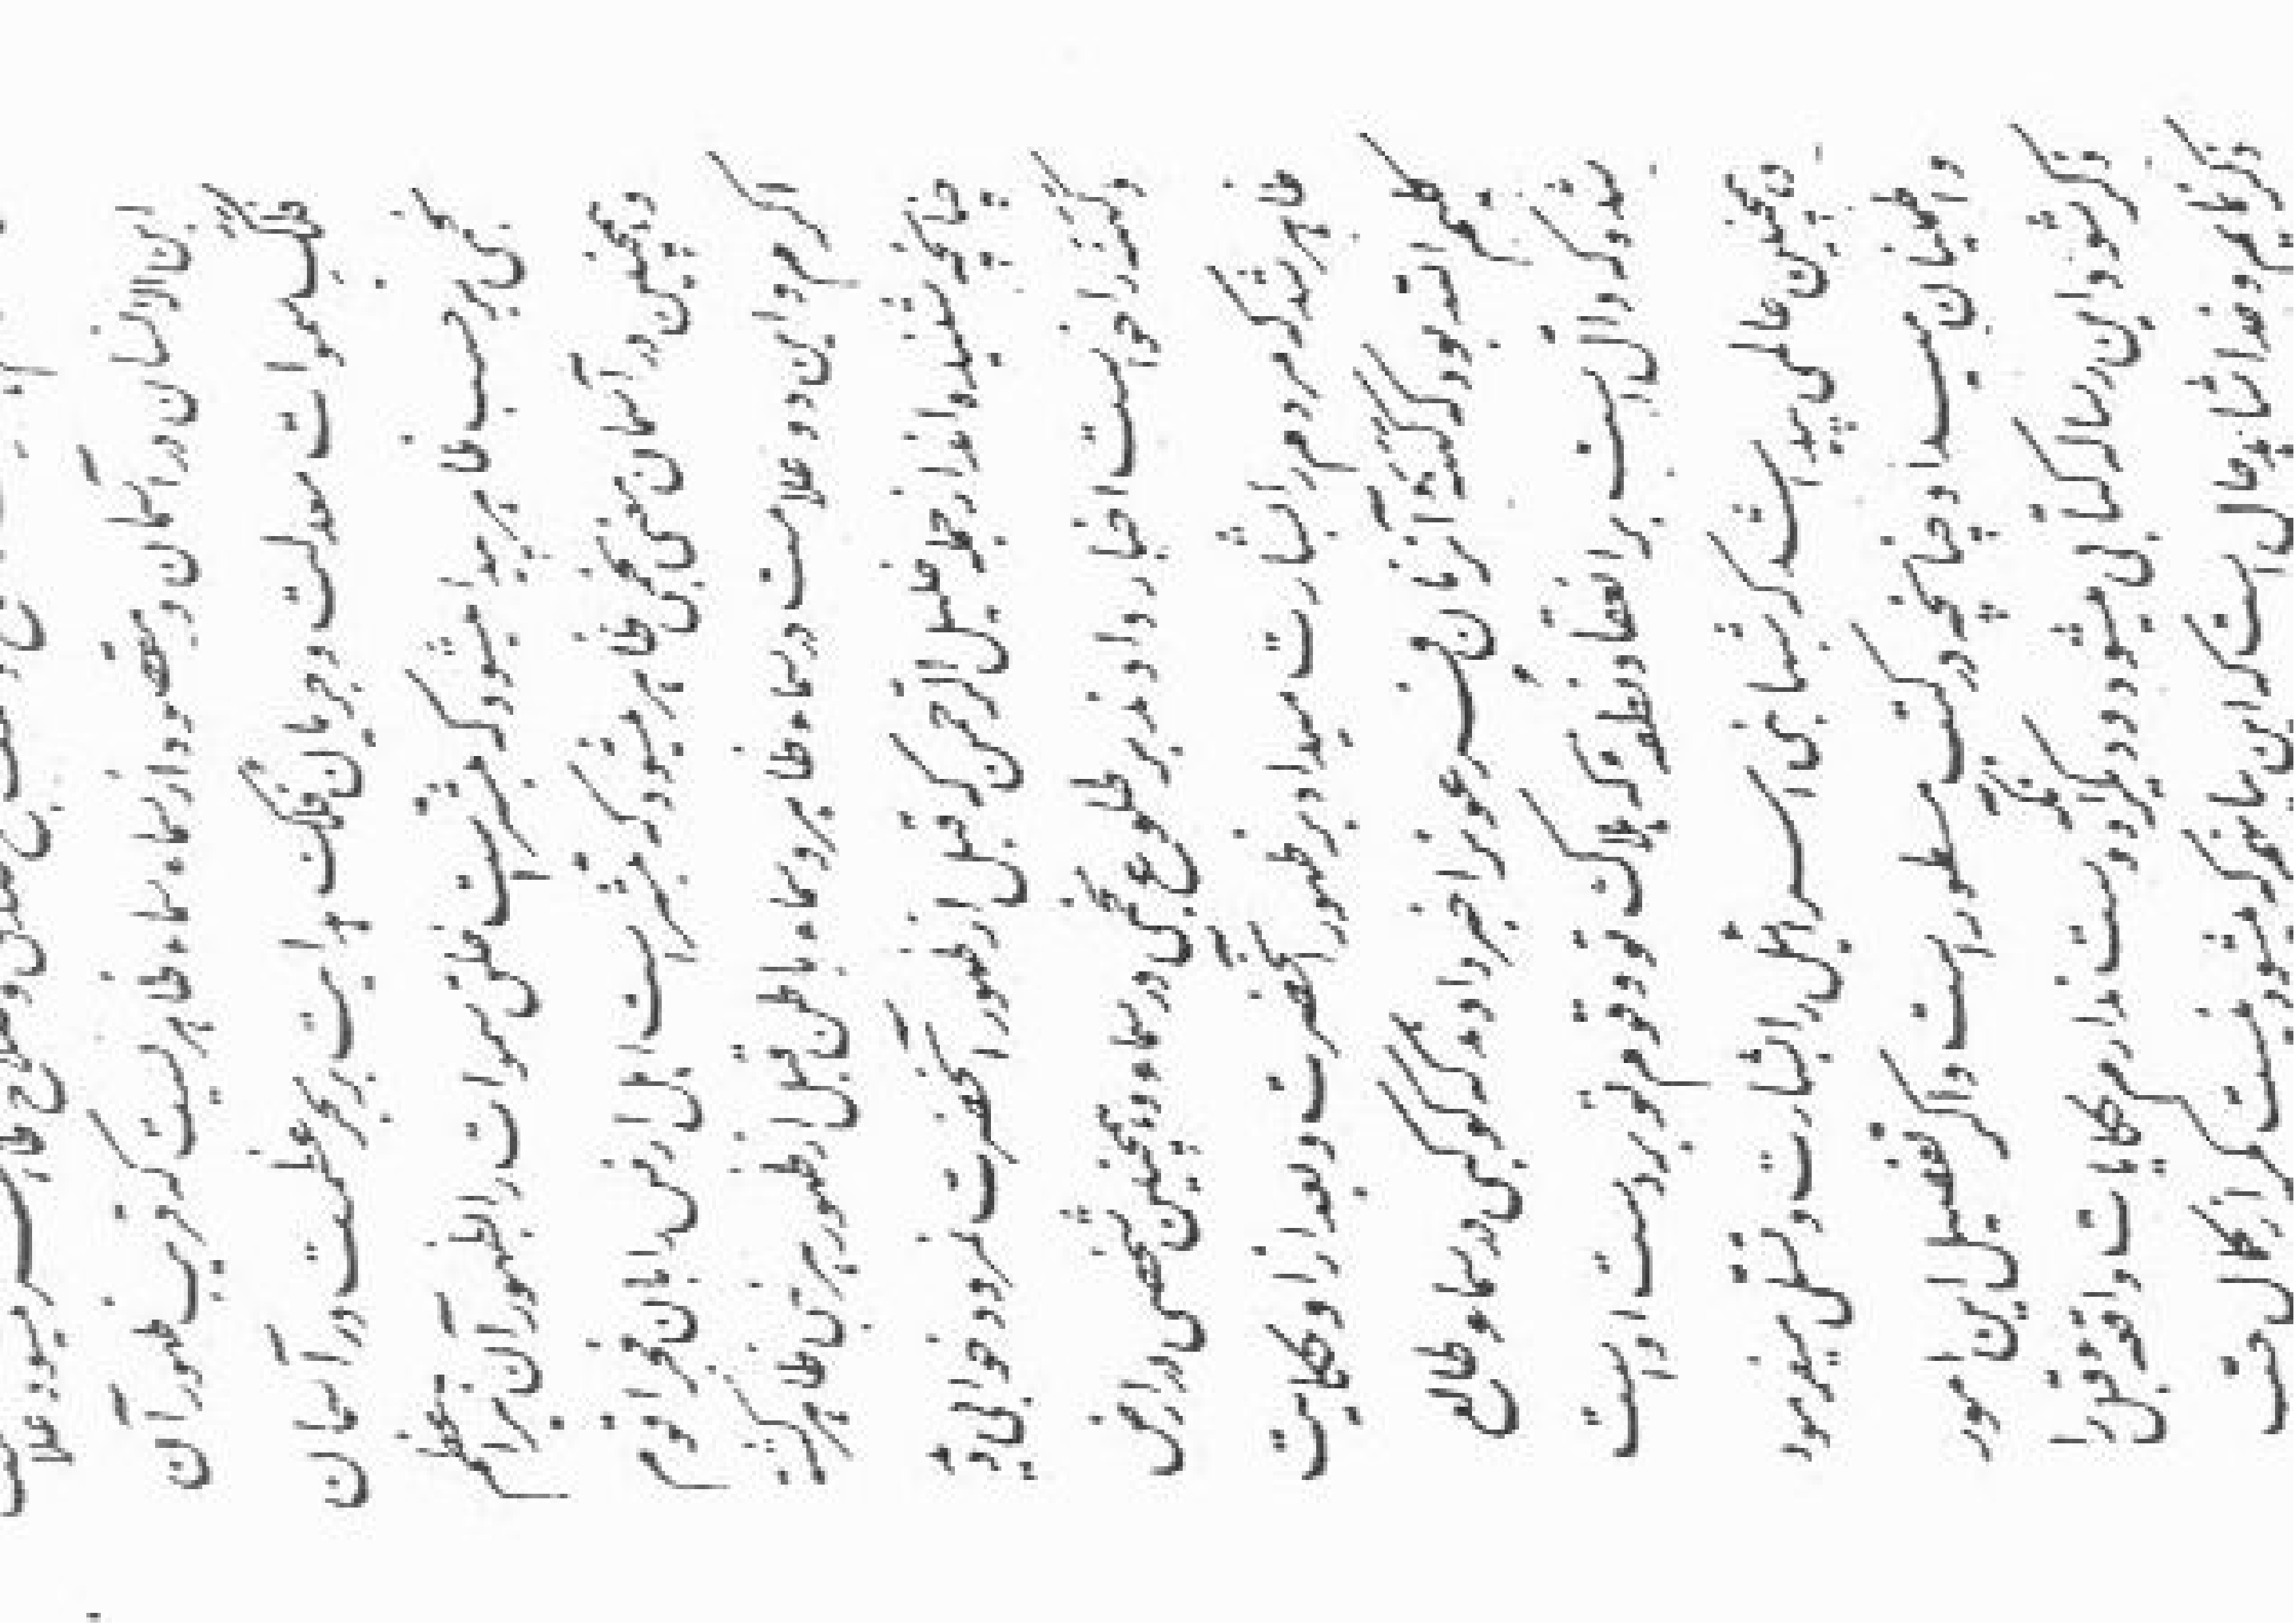 میرود علا
ابن الانسان در آسمان و مقصود از سماء سماء ظاهره نیست که قریب ظهور آن
فلک سموات معدلت و جریان فلک هدایت بر بحر عظمت در آسمان
نجمی بر حسب ظاهر پیدا میشود که مبشر است خلق سموات را بظهور آن نیر اعظم
و همچنین در آسمان معنی نجمی ظاهر میشود که مبشر است اهل ارض را بآن فجر اقوم
اکرم و این دو علامت در سماء ظاهره و سماء باطن قبل از ظهور هر نبی ظاهر گشته
چنانچه شنیده‌اند از جمله خلیل الرحمن که قبل از ظهور آنحضرت نمرود خوابی دید
و کهنه را خواست اخبار دادند بر طلوع نجمی در سماء و همچنین شخصی در ارض
ظاهر شد که مردم را بشارت میداد بر ظهور آنحضرت و بعد از او حکایت
کلیم الله بود که کهنه آن زمان فرعون را خبر دادند که کوکبی در سماء طالع
شده که دال است بر انعقاد نطفهٔ که هلاک تو و قوم تو بر دست اوست
و همچنین عالمی پیدا شد که شبها بنی اسرائیل را بشارت و تسلی میفرمود
و اطمینان میداد چنانچه در کتب مسطور است و اگر تفصیل این امور
ذکر شود این رساله کتابی میشود و دیگر آنکه دوست ندارم حکایات واقعه قبل را
ذکر نمایم و خدا شاهد حال است که این بیان هم که میشود نیست مگر از کمال حب